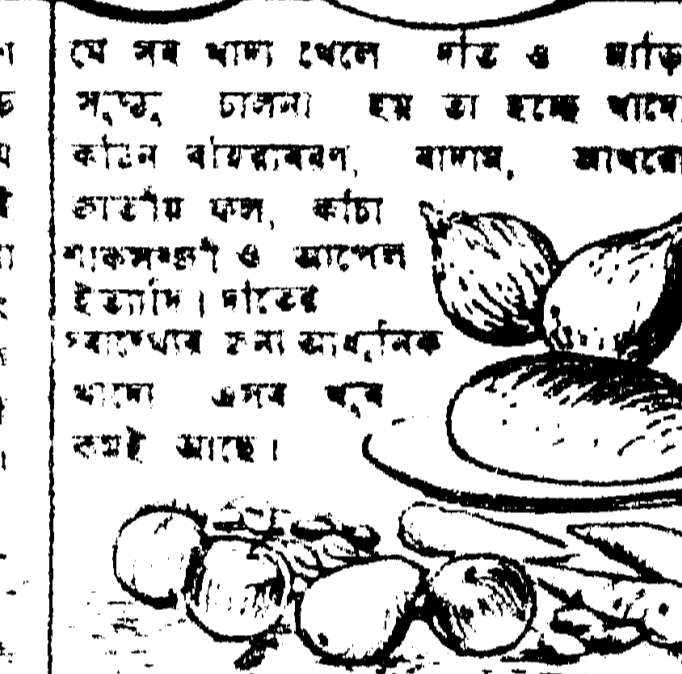 যে সব খাদ্য খেলে দাঁত ও মাড়ি
সুষ্ঠু চালনা হয় তা হচ্ছে খাদ্যে
কঠিন বহিরাবরণ, বাদাম, আখরো
জাতীয় ফল, কাঁচা
শাকসব্জী ও আপেল
ইত্যাদি। দাঁতের
স্বাস্থ্যের জন্য আধুনিক
খাদ্যে এসব খুব
কমই আছে।